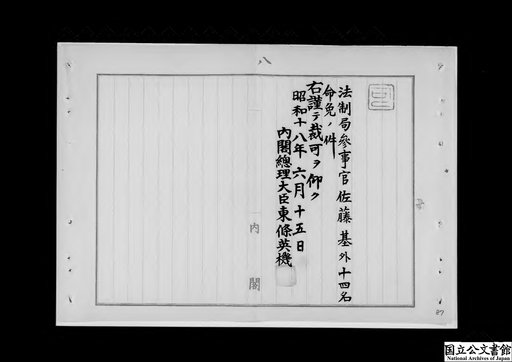 法制局參事官佐藤基外十四名
命免ノ件
右謹テ裁可ヲ仰ク
昭和十八年六月十五日
內閣總理大臣東條英機
八
內閣
国立公文書館
National Archives of Japan